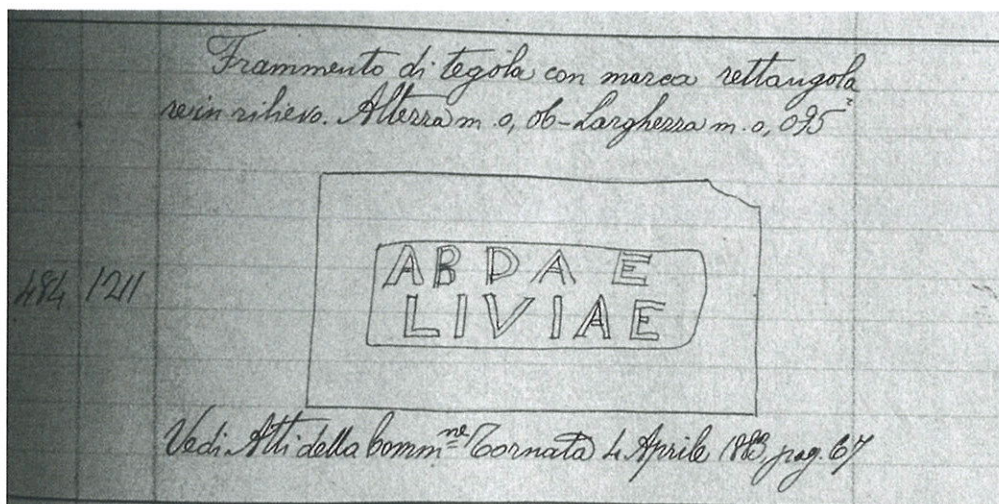 Frammento di tegola con marca rettangola
re in rilievo. Altezza m. 0,06 - Larghezza m. 0,095
ABDAE
LIVIAE
484 1211
Vedi Atti della Commne Tornata 4 Aprile 1883, pag. 67